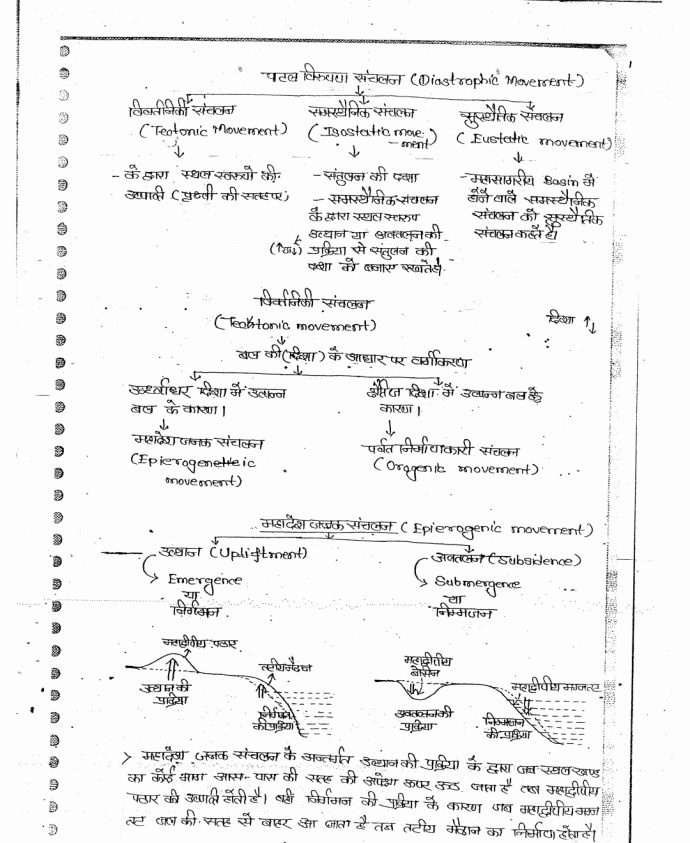 पटल विरूपण संचलन (Diastrophic Movement)
विवर्तनिकी संचलन
(Teotonic Movement)
समस्थैतिक संचलन
(Isostatic move-
ment)
सुस्थैतिक संचलन
(Eustatic movement)
- के द्वारा स्थल स्वरूपों की
उत्पत्ति (पृथ्वी की सतह पर)
- संतुलन की दशा
- समस्थैतिक संचलन
के द्वारा स्थल स्वरूप
उत्थान या अवतलन की
(↑↓) प्रक्रिया से संतुलन की
दशा को बनाए रखते हैं।
- महासागरीय Basin में
होने वाले समस्थैतिक
संचलन को सुस्थैतिक
संचलन कहते हैं।
विवर्तनिकी संचलन
(Teobtonic movement)
दिशा ↑↓
बल की (दिशा) के आधार पर वर्गीकरण
उर्ध्वाधर दिशा में उत्पन्न
बल के कारण।
महादेश जनक संचलन
(Epierogenetteic
movement)
क्षैतिज दिशा में उत्पन्न बल के
कारण।
पर्वत निर्माणकारी संचलन
(Orogenic movement)
महादेश जनक संचलन (Epierogenic movement)
उत्थान (Upliftment)
Emergence
या
निर्गमन
अवतलन (Subsidence)
Submergence
या
निमज्जन
महाद्वीपीय पठार
उत्थान की
प्रक्रिया
तटीय मैदान
निर्गमन
की प्रक्रिया
महाद्वीपीय
बेसिन
अवतलन की
प्रक्रिया
महाद्वीपीय मग्नतट
निमज्जन
की प्रक्रिया
> महादेश जनक संचलन के अन्तर्गत उत्थान की प्रक्रिया के द्वारा जब स्थलखण्ड
का कोई भाग आस-पास की सतह की अपेक्षा ऊपर उठ जाता है तब महाद्वीपीय
पठार की उत्पत्ति होती है। वही निर्गमन की प्रक्रिया के कारण जब महाद्वीपीय मग्न
तट जल की सतह से बाहर आ जाता है तब तटीय मैदान का निर्माण होता है।